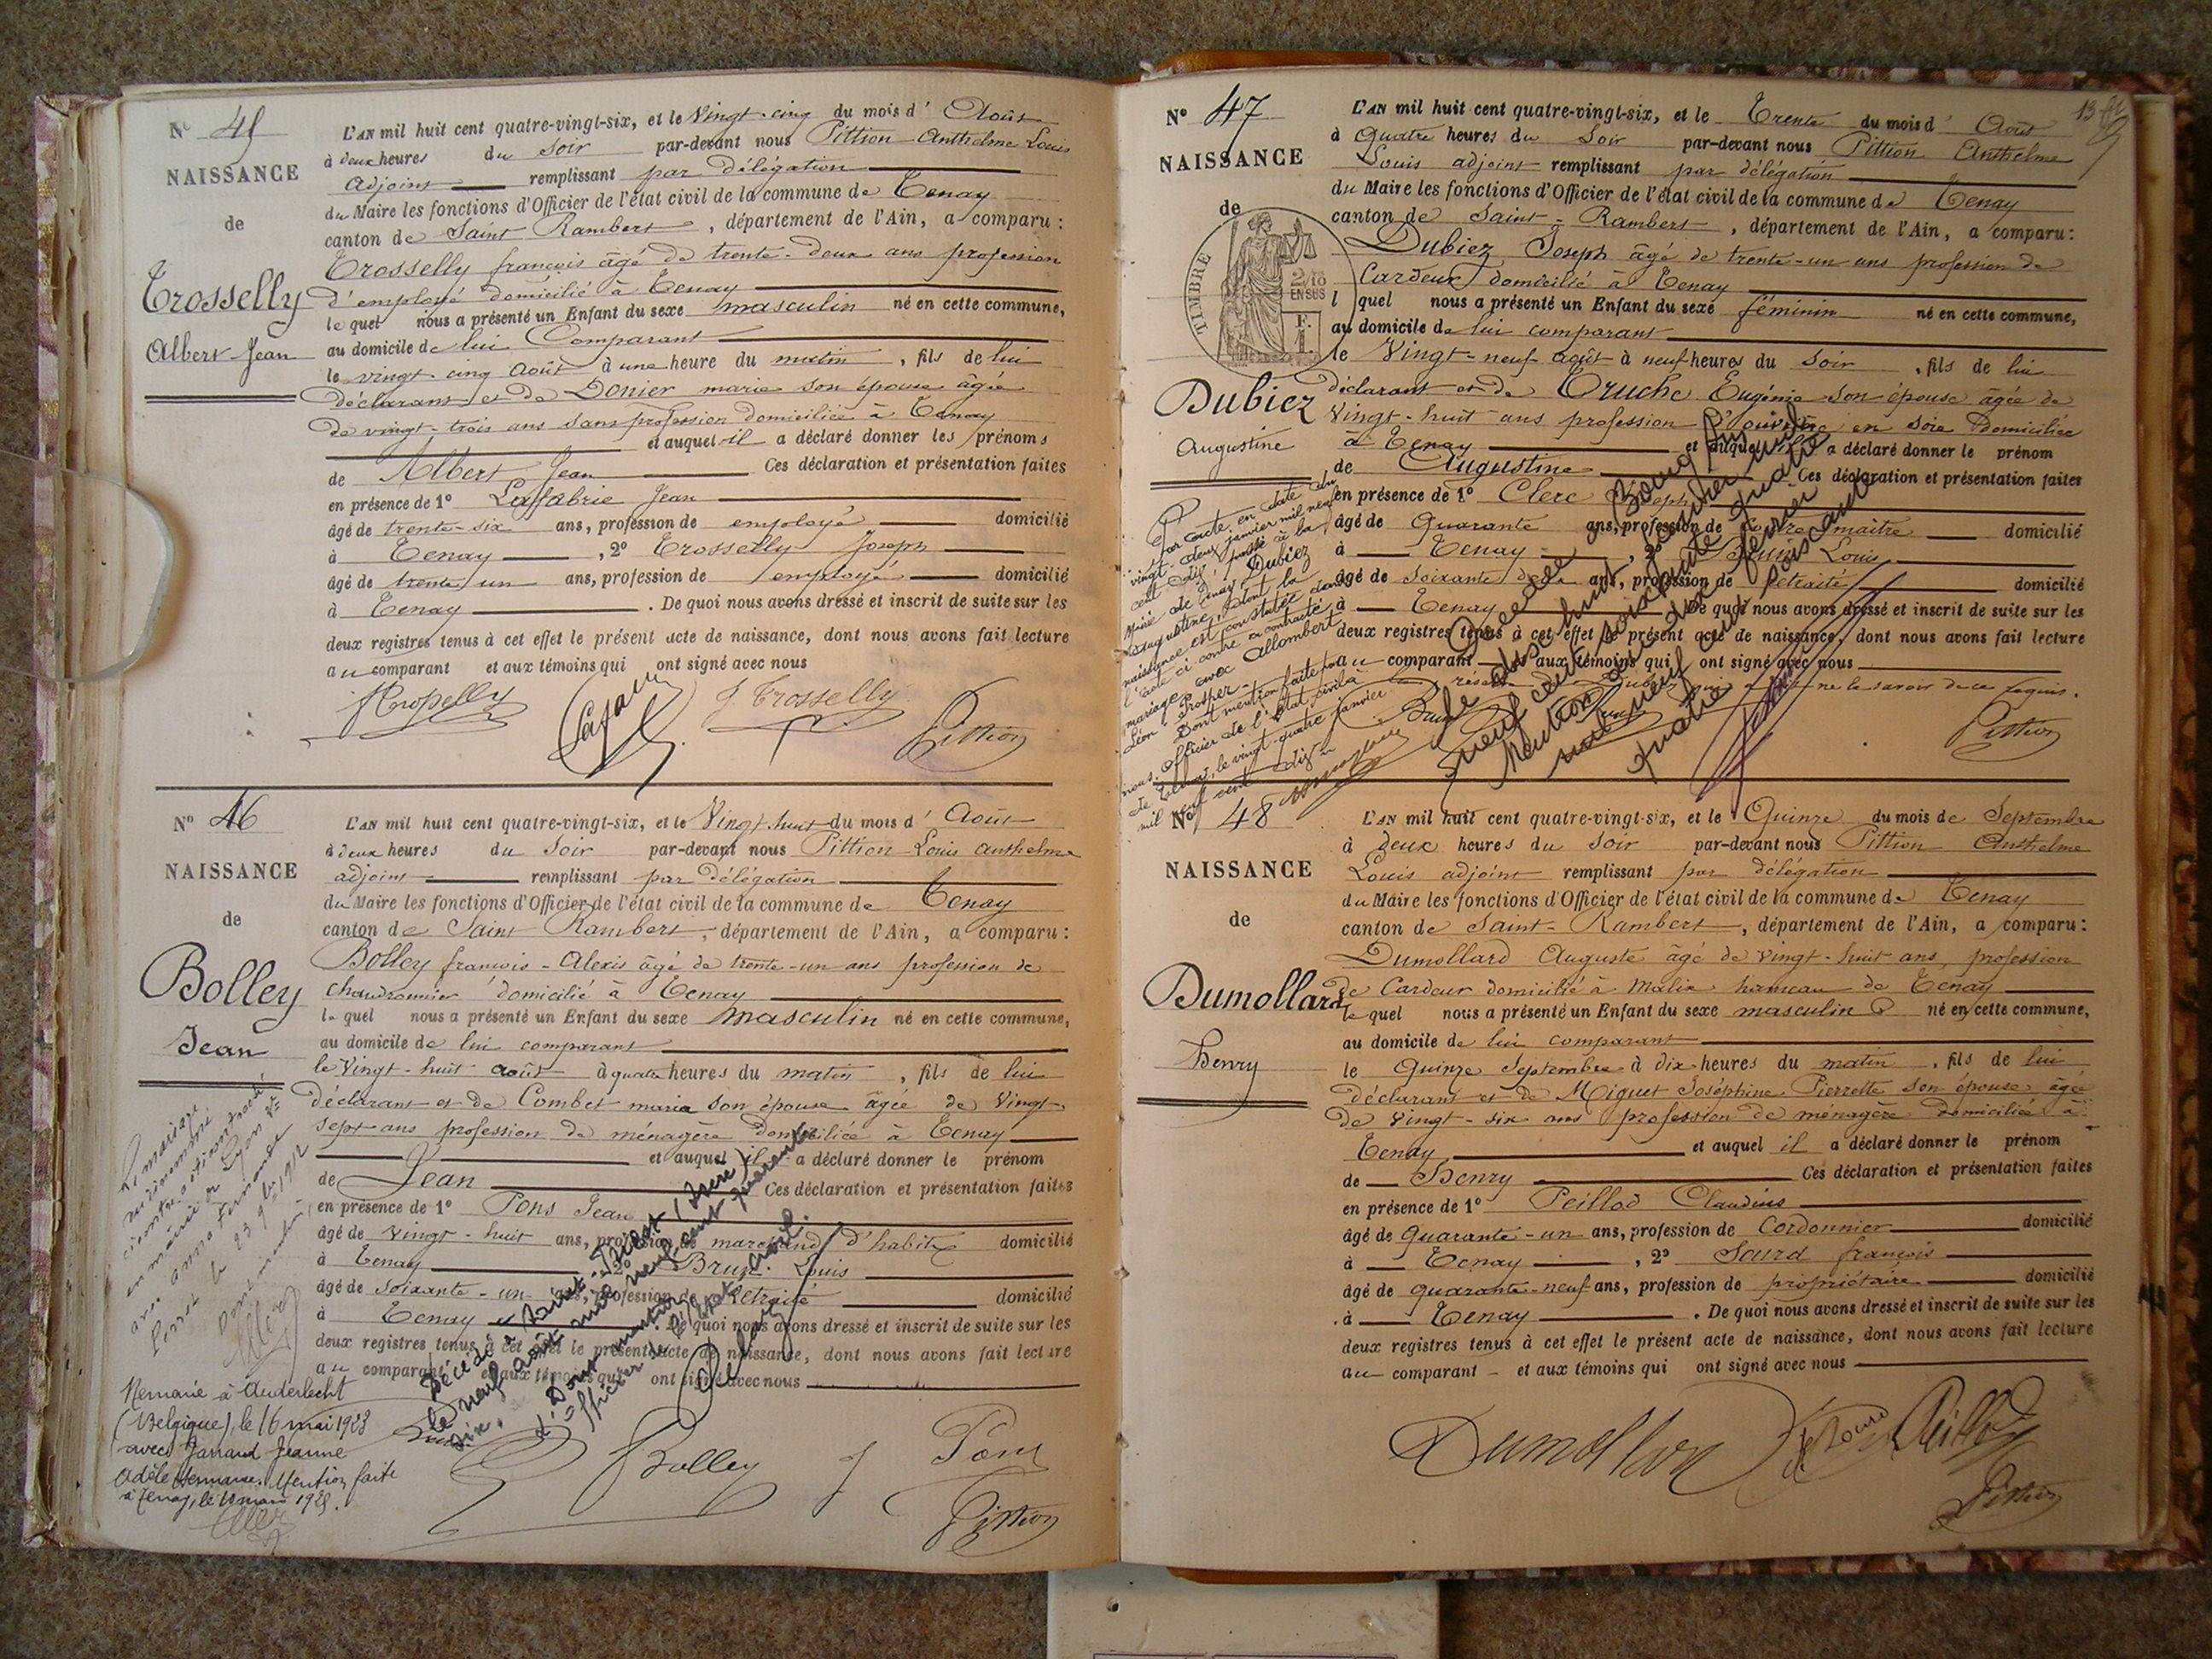 No 45
NAISSANCE
de
Trosselly
Albert Jean
L'AN mil huit cent quatre-vingt-six, et le Vingt-cinq du mois d' Août
à deux heures du Soir par-devant nous Pittion Anthelme Louis
Adjoint remplissant par délégation
du Maire les fonctions d'Officier de l'état civil de la commune de Tenay
canton de Saint Rambert, département de l'Ain, a comparu :
Trosselly françois âgé de trente-deux ans profession
d'employé domicilié à Tenay
le quel nous a présenté un Enfant du sexe masculin né en cette commune,
au domicile de lui Comparant
le vingt-cinq Août à une heure du matin, fils de lui
déclarant et de Donier marie son épouse âgée
de vingt-trois ans sans profession domiciliée à Tenay
et auquel il a déclaré donner les prénoms
de Albert Jean Ces déclaration et présentation faites
en présence de 1º Laffabrie Jean
âgé de trente-six ans, profession de employé domicilié
à Tenay, 2º Trosselly Joseph
âgé de trente un ans, profession de employé domicilié
à Tenay. De quoi nous avons dressé et inscrit de suite sur les
deux registres tenus à cet effet le présent acte de naissance, dont nous avons fait lecture
au comparant et aux témoins qui ont signé avec nous
J Trosselly
Pittion
No 46
NAISSANCE
de
Bolley
Jean
L'AN mil huit cent quatre-vingt-six, et le Vingt-huit du mois d' Août
à deux heures du Soir par-devant nous Pittion Louis anthelme
adjoint remplissant par délégation
du Maire les fonctions d'Officier de l'état civil de la commune de Tenay
canton de Saint Rambert, département de l'Ain, a comparu :
Bolley françois-Alexis âgé de trente-un ans profession de
chaudronnier domicilié à Tenay
le quel nous a présenté un Enfant du sexe masculin né en cette commune,
au domicile de lui comparant
le Vingt-huit août à quatre heures du matin, fils de lui
déclarant et de Combet maria son épouse âgée de Vingt
sept ans profession de ménagère domiciliée à Tenay
et auquel il a déclaré donner le prénom
de Jean Ces déclaration et présentation faites
en présence de 1º Pons Jean
âgé de vingt-huit ans, profession de marchand d'habits domicilié
à Tenay, 2º Brun Louis
âgé de soixante-un ans, profession de Retraité domicilié
à Tenay. De quoi nous avons dressé et inscrit de suite sur les
deux registres tenus à cet effet le présent acte de naissance, dont nous avons fait lecture
au comparant et aux témoins qui ont signé avec nous
Décédé à Saint (Isère)
le neuf août mil neuf cent quarante
six. Dont mention
l'Officier de l'Etat civil.
Remarié à Anderlecht
(Belgique), le 16 mai 1923
avec Jarraud Jeanne
Adèle Germaine. Mention faite
à Tenay, le
Bolley
J Pons
Pittion
13
No 47
NAISSANCE
de
TIMBRE
2/10
EN SUS
Dubiez
Augustine
L'AN mil huit cent quatre-vingt-six, et le Trente du mois d' Août
à Quatre heures du Soir par-devant nous Pittion Anthelme
Louis adjoint remplissant par délégation
du Maire les fonctions d'Officier de l'état civil de la commune de Tenay
canton de Saint-Rambert, département de l'Ain, a comparu :
Dubiez Joseph âgé de trente-un ans profession de
Cardeur domicilié à Tenay
l quel nous a présenté un Enfant du sexe féminin né en cette commune,
au domicile de lui comparant
le Vingt-neuf août à neuf heures du Soir, fils de lui
déclarant et de Truche Eugénie son épouse âgée de
Vingt-huit ans profession d'ouvrière en soie domiciliée
à Tenay et auquel il a déclaré donner le prénom
de Augustine Ces déclaration et présentation faites
en présence de 1º Clerc Joseph
âgé de Quarante ans, profession de contre maître domicilié
à Tenay, 2º Brun Louis
âgé de soixante ans, profession de Retraité domicilié
à Tenay De quoi nous avons dressé et inscrit de suite sur les
deux registres tenus à cet effet le présent acte de naissance, dont nous avons fait lecture
au comparant et aux témoins qui ont signé avec nous
ne le savoir de ce requis.
Par acte en date du
vingt-deux janvier mil neuf
cent dix, passé à la
Mairie de Tenay, Dubiez
Augustine, dont la
naissance est constatée dans
l'acte ci contre a contracté
mariage avec Allombert
Léon Prosper
Dont mention faite par
nous, Officier de l'état civil
de Tenay, le vingt-quatre janvier
mil neuf cent dix
Décédée à Bourg
le dix huit
neuf cent soixante quatre
Mention
Pittion
No 48
NAISSANCE
de
Dumollard
Henry
L'AN mil huit cent quatre-vingt-six, et le Quinze du mois de Septembre
à Deux heures du Soir par-devant nous Pittion Anthelme
Louis adjoint remplissant par délégation
du Maire les fonctions d'Officier de l'état civil de la commune de Tenay
canton de Saint-Rambert, département de l'Ain, a comparu :
Dumollard Auguste âgé de vingt-huit ans, profession
de Cardeur domicilié à Malix hameau de Tenay
le quel nous a présenté un Enfant du sexe masculin né en cette commune,
au domicile de lui comparant
le Quinze Septembre à dix heures du matin, fils de lui
déclarant et de Miguet Joséphine Pierrette son épouse âgée
de vingt-six ans profession de ménagère domiciliée à
Tenay et auquel il a déclaré donner le prénom
de Henry Ces déclaration et présentation faites
en présence de 1º Peillod Claudius
âgé de Quarante-un ans, profession de Cordonnier domicilié
à Tenay, 2º françois
âgé de quarante-neuf ans, profession de propriétaire domicilié
à Tenay. De quoi nous avons dressé et inscrit de suite sur les
deux registres tenus à cet effet le présent acte de naissance, dont nous avons fait lecture
au comparant et aux témoins qui ont signé avec nous
Dumollard
Peillod
Pittion